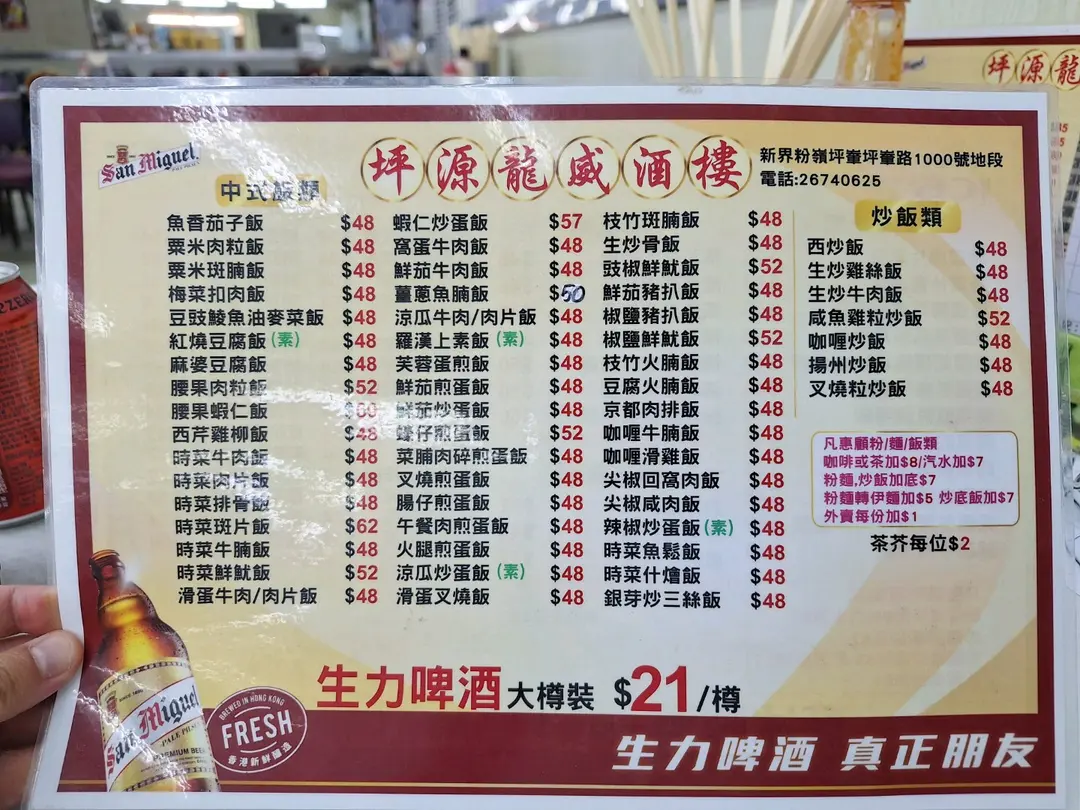 坪源龍
San Miguel
坪源龍威酒樓
新界粉嶺坪輋坪輋路1000號地段
電話:26740625
中式飯類
魚香茄子飯 $48
粟米肉粒飯 $48
粟米斑腩飯 $48
梅菜扣肉飯 $48
豆豉鯪魚油麥菜飯 $48
紅燒豆腐飯(素) $48
麻婆豆腐飯 $48
腰果肉粒飯 $52
腰果蝦仁飯
西芹雞柳飯 $48
時菜牛肉飯 $48
時菜肉片飯 $48
時菜排骨飯 $48
時菜斑片飯 $62
時菜牛腩飯 $48
時菜鮮魷飯 $52
滑蛋牛肉/肉片飯 $48
蝦仁炒蛋飯 $57
窩蛋牛肉飯 $48
鮮茄牛肉飯 $48
薑蔥魚腩飯 $50
涼瓜牛肉/肉片飯 $48
羅漢上素飯(素) $48
芙蓉蛋煎飯 $48
鮮茄煎蛋飯 $48
鮮茄炒蛋飯 $48
蠔仔煎蛋飯 $52
菜脯肉碎煎蛋飯 $48
叉燒煎蛋飯 $48
腸仔煎蛋飯 $48
午餐肉煎蛋飯 $48
火腿煎蛋飯 $48
涼瓜炒蛋飯(素) $48
滑蛋叉燒飯 $48
枝竹斑腩飯 $48
生炒骨飯 $48
豉椒鮮魷飯 $52
鮮茄豬扒飯 $48
椒鹽豬扒飯 $48
椒鹽鮮魷飯 $52
枝竹火腩飯 $48
豆腐火腩飯 $48
京都肉排飯 $48
咖喱牛腩飯 $48
咖喱滑雞飯 $48
尖椒回窩肉飯 $48
尖椒咸肉飯 $48
辣椒炒蛋飯(素) $48
時菜魚鬆飯 $48
時菜什燴飯 $48
銀芽炒三絲飯 $48
炒飯類
西炒飯 $48
生炒雞絲飯 $48
生炒牛肉飯 $48
咸魚雞粒炒飯 $52
咖喱炒飯 $48
揚州炒飯 $48
叉燒粒炒飯 $48
凡惠顧粉/麵/飯類
咖啡或茶加$8/汽水加$7
粉麵,炒飯加底$7
粉麵轉伊麵加$5 炒底飯加$7
外賣每份加$1
茶芥每位$2
生力啤酒 大樽裝 $21/樽
San Miguel
PALE PILSEN
PREMIUM BEER
BREWED IN HONG KONG
FRESH
香港新鮮釀造
生力啤酒 真正朋友